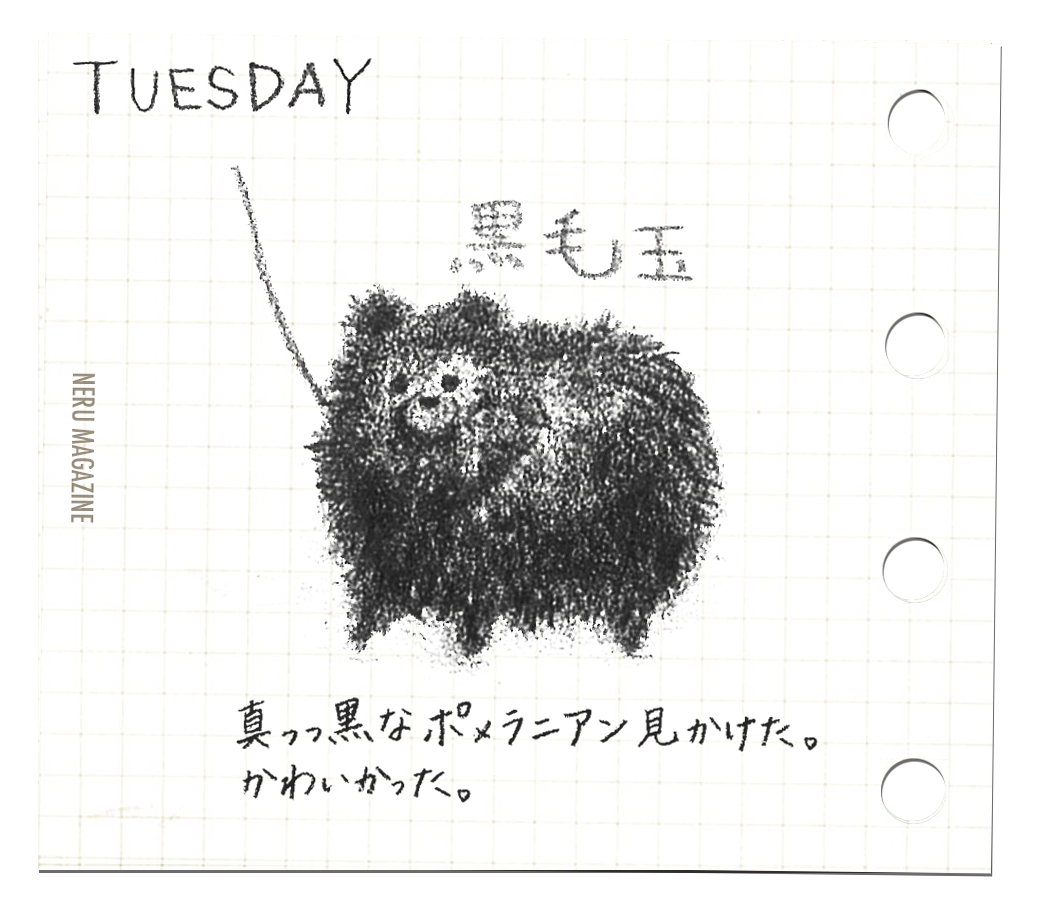 TUESDAY
黒毛玉
NERU MAGAZINE
真っっ黒なポメラニアン見かけた。
かわいかった。